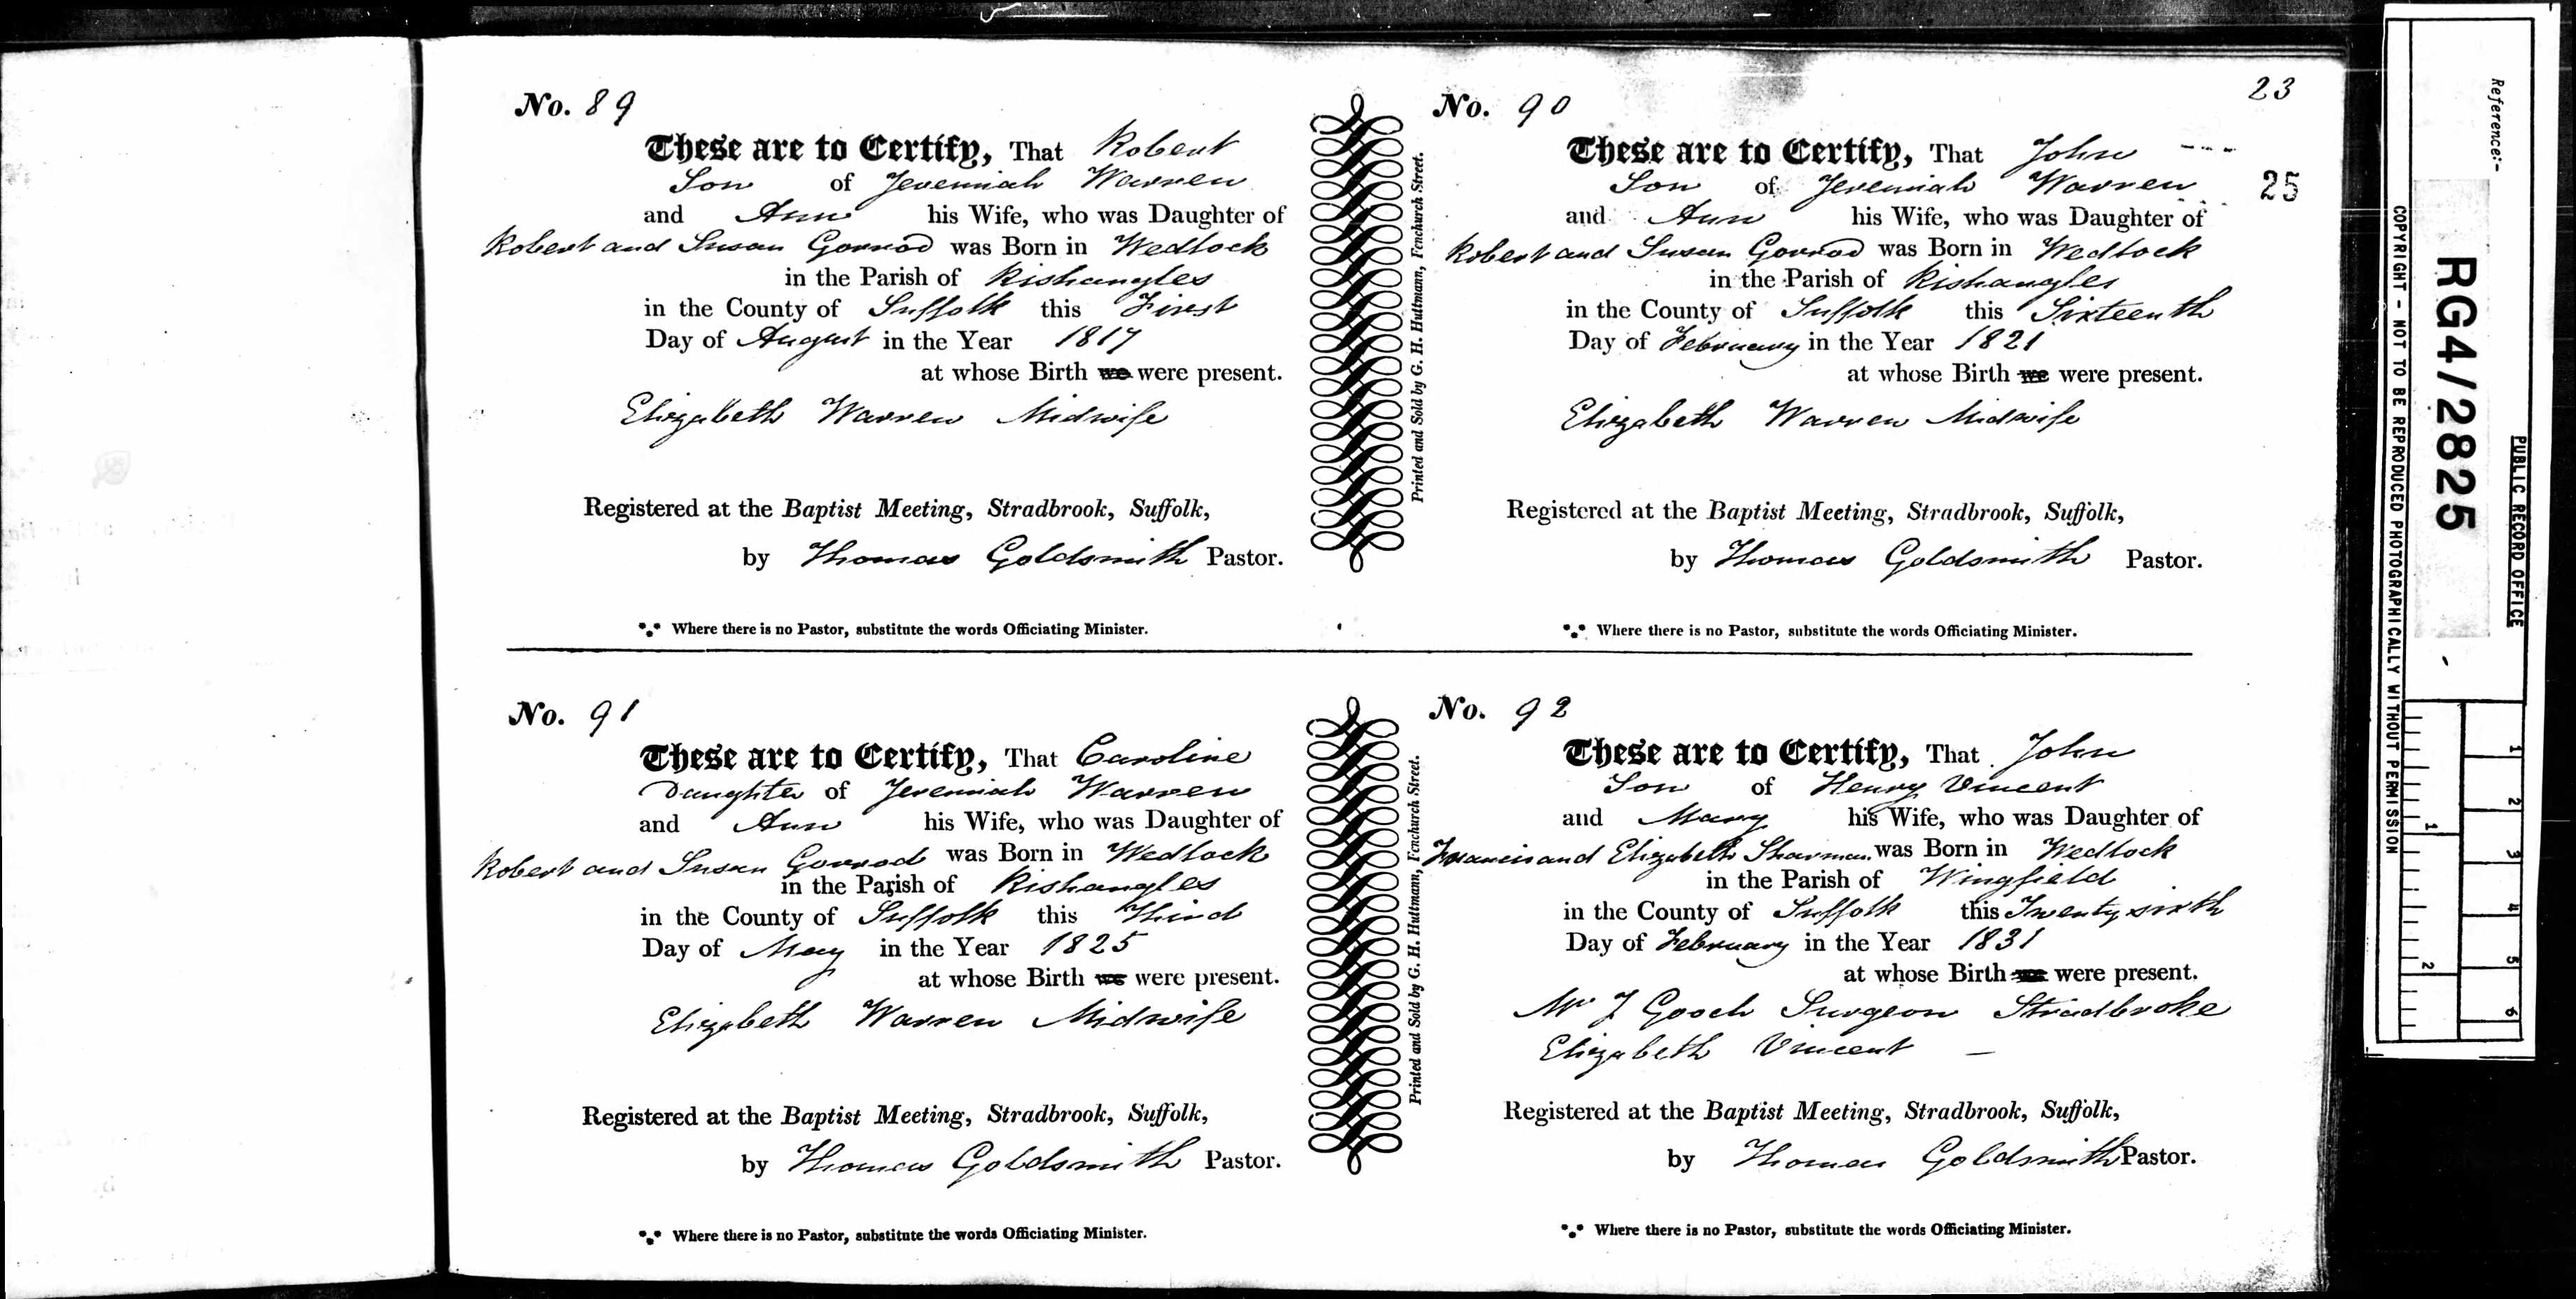 No. 89
These are to Certify, That Robert
Son of Jeremiah Warren
and Ann his Wife, who was Daughter of
Robert and Susan Gorrod was Born in Wedlock
in the Parish of Rishangles
in the County of Suffolk this First
Day of August in the Year 1817
at whose Birth we were present.
Elizabeth Warren Midwife
Registered at the Baptist Meeting, Stradbrook, Suffolk,
by Thomas Goldsmith Pastor.
Where there is no Pastor, substitute the words Officiating Minister.
Printed and Sold by G. H. Huttmann, Fenchurch Street.
23
No. 90
These are to Certify, That John
Son of Jeremiah Warren
25
and Ann his Wife, who was Daughter of
Robert and Susan Gorrod was Born in Wedlock
in the Parish of Rishangles
in the County of Suffolk this Sixteenth
Day of February in the Year 1821
at whose Birth we were present.
Elizabeth Warren Midwife
Registered at the Baptist Meeting, Stradbrook, Suffolk,
by Thomas Goldsmith Pastor.
Where there is no Pastor, substitute the words Officiating Minister.
No. 91
These are to Certify, That Caroline
Daughter of Jeremiah Warren
and Ann his Wife, who was Daughter of
Robert and Susan Gorrod was Born in Wedlock
in the Parish of Rishangles
in the County of Suffolk this Third
Day of May in the Year 1825
at whose Birth we were present.
Elizabeth Warren Midwife
Registered at the Baptist Meeting, Stradbrook, Suffolk,
by Thomas Goldsmith Pastor.
Where there is no Pastor, substitute the words Officiating Minister.
Printed and Sold by G. H. Huttmann, Fenchurch Street.
No. 92
These are to Certify, That John
Son of Henry Vincent
and Mary his Wife, who was Daughter of
Francis and Elizabeth Sharman was Born in Wedlock
in the Parish of Wingfield
in the County of Suffolk this Twenty sixth
Day of February in the Year 1831
at whose Birth we were present.
Mr J Gooch Surgeon Stradbroke
Elizabeth Vincent
Registered at the Baptist Meeting, Stradbrook, Suffolk,
by Thomas Goldsmith Pastor.
Where there is no Pastor, substitute the words Officiating Minister.
Reference:-
PUBLIC RECORD OFFICE
RG4/2825
COPYRIGHT - NOT TO BE REPRODUCED PHOTOGRAPHICALLY WITHOUT PERMISSION
1 2 3 4 5 6
1 2